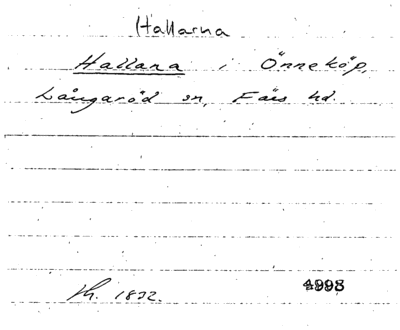 Hallarna
Hallana i Önneköp,
Långaröd sn, Färs hd.
1832.
4998